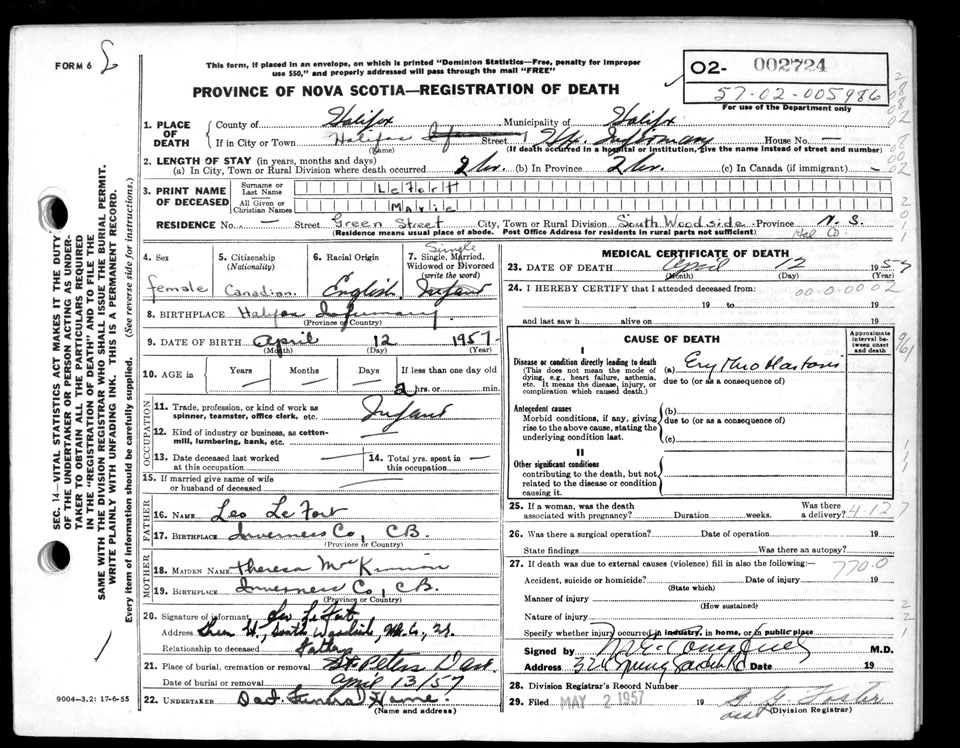 FORM 6
This form, if placed in an envelope, on which is printed "Dominion Statistics—Free, penalty for improper
use $50," and properly addressed will pass through the mail "FREE"
PROVINCE OF NOVA SCOTIA—REGISTRATION OF DEATH
O2- 002724
57-02-005986
For use of the Department only
SEC. 14—VITAL STATISTICS ACT MAKES IT THE DUTY
OF THE UNDERTAKER OR PERSON ACTING AS UNDER-
TAKER TO OBTAIN ALL THE PARTICULARS REQUIRED
IN THE "REGISTRATION OF DEATH" AND TO FILE THE
SAME WITH THE DIVISION REGISTRAR WHO SHALL ISSUE THE BURIAL PERMIT.
WRITE PLAINLY WITH UNFADING INK. THIS IS A PERMANENT RECORD.
Every item of information should be carefully supplied. (See reverse side for instructions.)
1. PLACE OF DEATH
County of Halifax Municipality of Halifax
If in City or Town Halifax Street Hfx. Infirmary House No. —
(Name) (If death occurred in a hospital or institution, give the name instead of street and number)
2. LENGTH OF STAY (in years, months and days)
(a) In City, Town or Rural Division where death occurred 2 hr. (b) In Province 2 hr. (c) In Canada (if immigrant) —
3. PRINT NAME OF DECEASED
Surname or Last Name LeFort
All Given or Christian Names Marie
RESIDENCE No. — Street Green Street City, Town or Rural Division South Woodside Province N. S.
(Residence means usual place of abode. Post Office Address for residents in rural parts not sufficient) Hal Co
4. Sex female
5. Citizenship (Nationality) Canadian
6. Racial Origin English
7. Single, Married, Widowed or Divorced (write the word) Single Infant
8. BIRTHPLACE Halifax Infirmary
(Province or Country)
9. DATE OF BIRTH April 12 1957
(Month) (Day) (Year)
10. AGE in Years — Months — Days — If less than one day old 2 hrs. or min.
OCCUPATION
11. Trade, profession, or kind of work as spinner, teamster, office clerk, etc. Infant
12. Kind of industry or business, as cotton-mill, lumbering, bank, etc. —
13. Date deceased last worked at this occupation — 14. Total yrs. spent in this occupation —
15. If married give name of wife or husband of deceased
FATHER
16. NAME Leo Le Fort
17. BIRTHPLACE Inverness Co, C.B.
(Province or Country)
MOTHER
18. MAIDEN NAME Theresa MacKinnon
19. BIRTHPLACE Inverness Co, C.B.
(Province or Country)
20. Signature of informant Leo Le Fort
Address Green St., South Woodside, Hfx. Co., N.S.
Relationship to deceased Father
21. Place of burial, cremation or removal St. Peters Dart
Date of burial or removal April 13/57
22. UNDERTAKER Dart. Funeral Home
(Name and address)
9004-3.2: 17-6-55
MEDICAL CERTIFICATE OF DEATH
23. DATE OF DEATH April 12 1957
(Month) (Day) (Year)
24. I HEREBY CERTIFY that I attended deceased from:
00-0-00-02
19 to 19
and last saw h alive on 19
CAUSE OF DEATH
Approximate interval between onset and death
I
Disease or condition directly leading to death
(This does not mean the mode of dying, e.g., heart failure, asthenia, etc. It means the disease, injury, or complication which caused death.)
(a) Erythroblastosis
due to (or as a consequence of)
Antecedent causes
Morbid conditions, if any, giving rise to the above cause, stating the underlying condition last.
(b)
due to (or as a consequence of)
(c)
II
Other significant conditions
contributing to the death, but not related to the disease or condition causing it.
25. If a woman, was the death associated with pregnancy? Duration weeks. Was there a delivery?
4.127
26. Was there a surgical operation? Date of operation 19
State findings Was there an autopsy?
27. If death was due to external causes (violence) fill in also the following:
770.0
Accident, suicide or homicide? Date of injury 19
(State which)
Manner of injury
(How sustained)
Nature of injury
Specify whether injury occurred in industry, in home, or in public place
Signed by M.D.
Address 326 Spring Garden Rd Date 19
28. Division Registrar's Record Number
29. Filed MAY 2 1957 19 Foster
(Division Registrar)